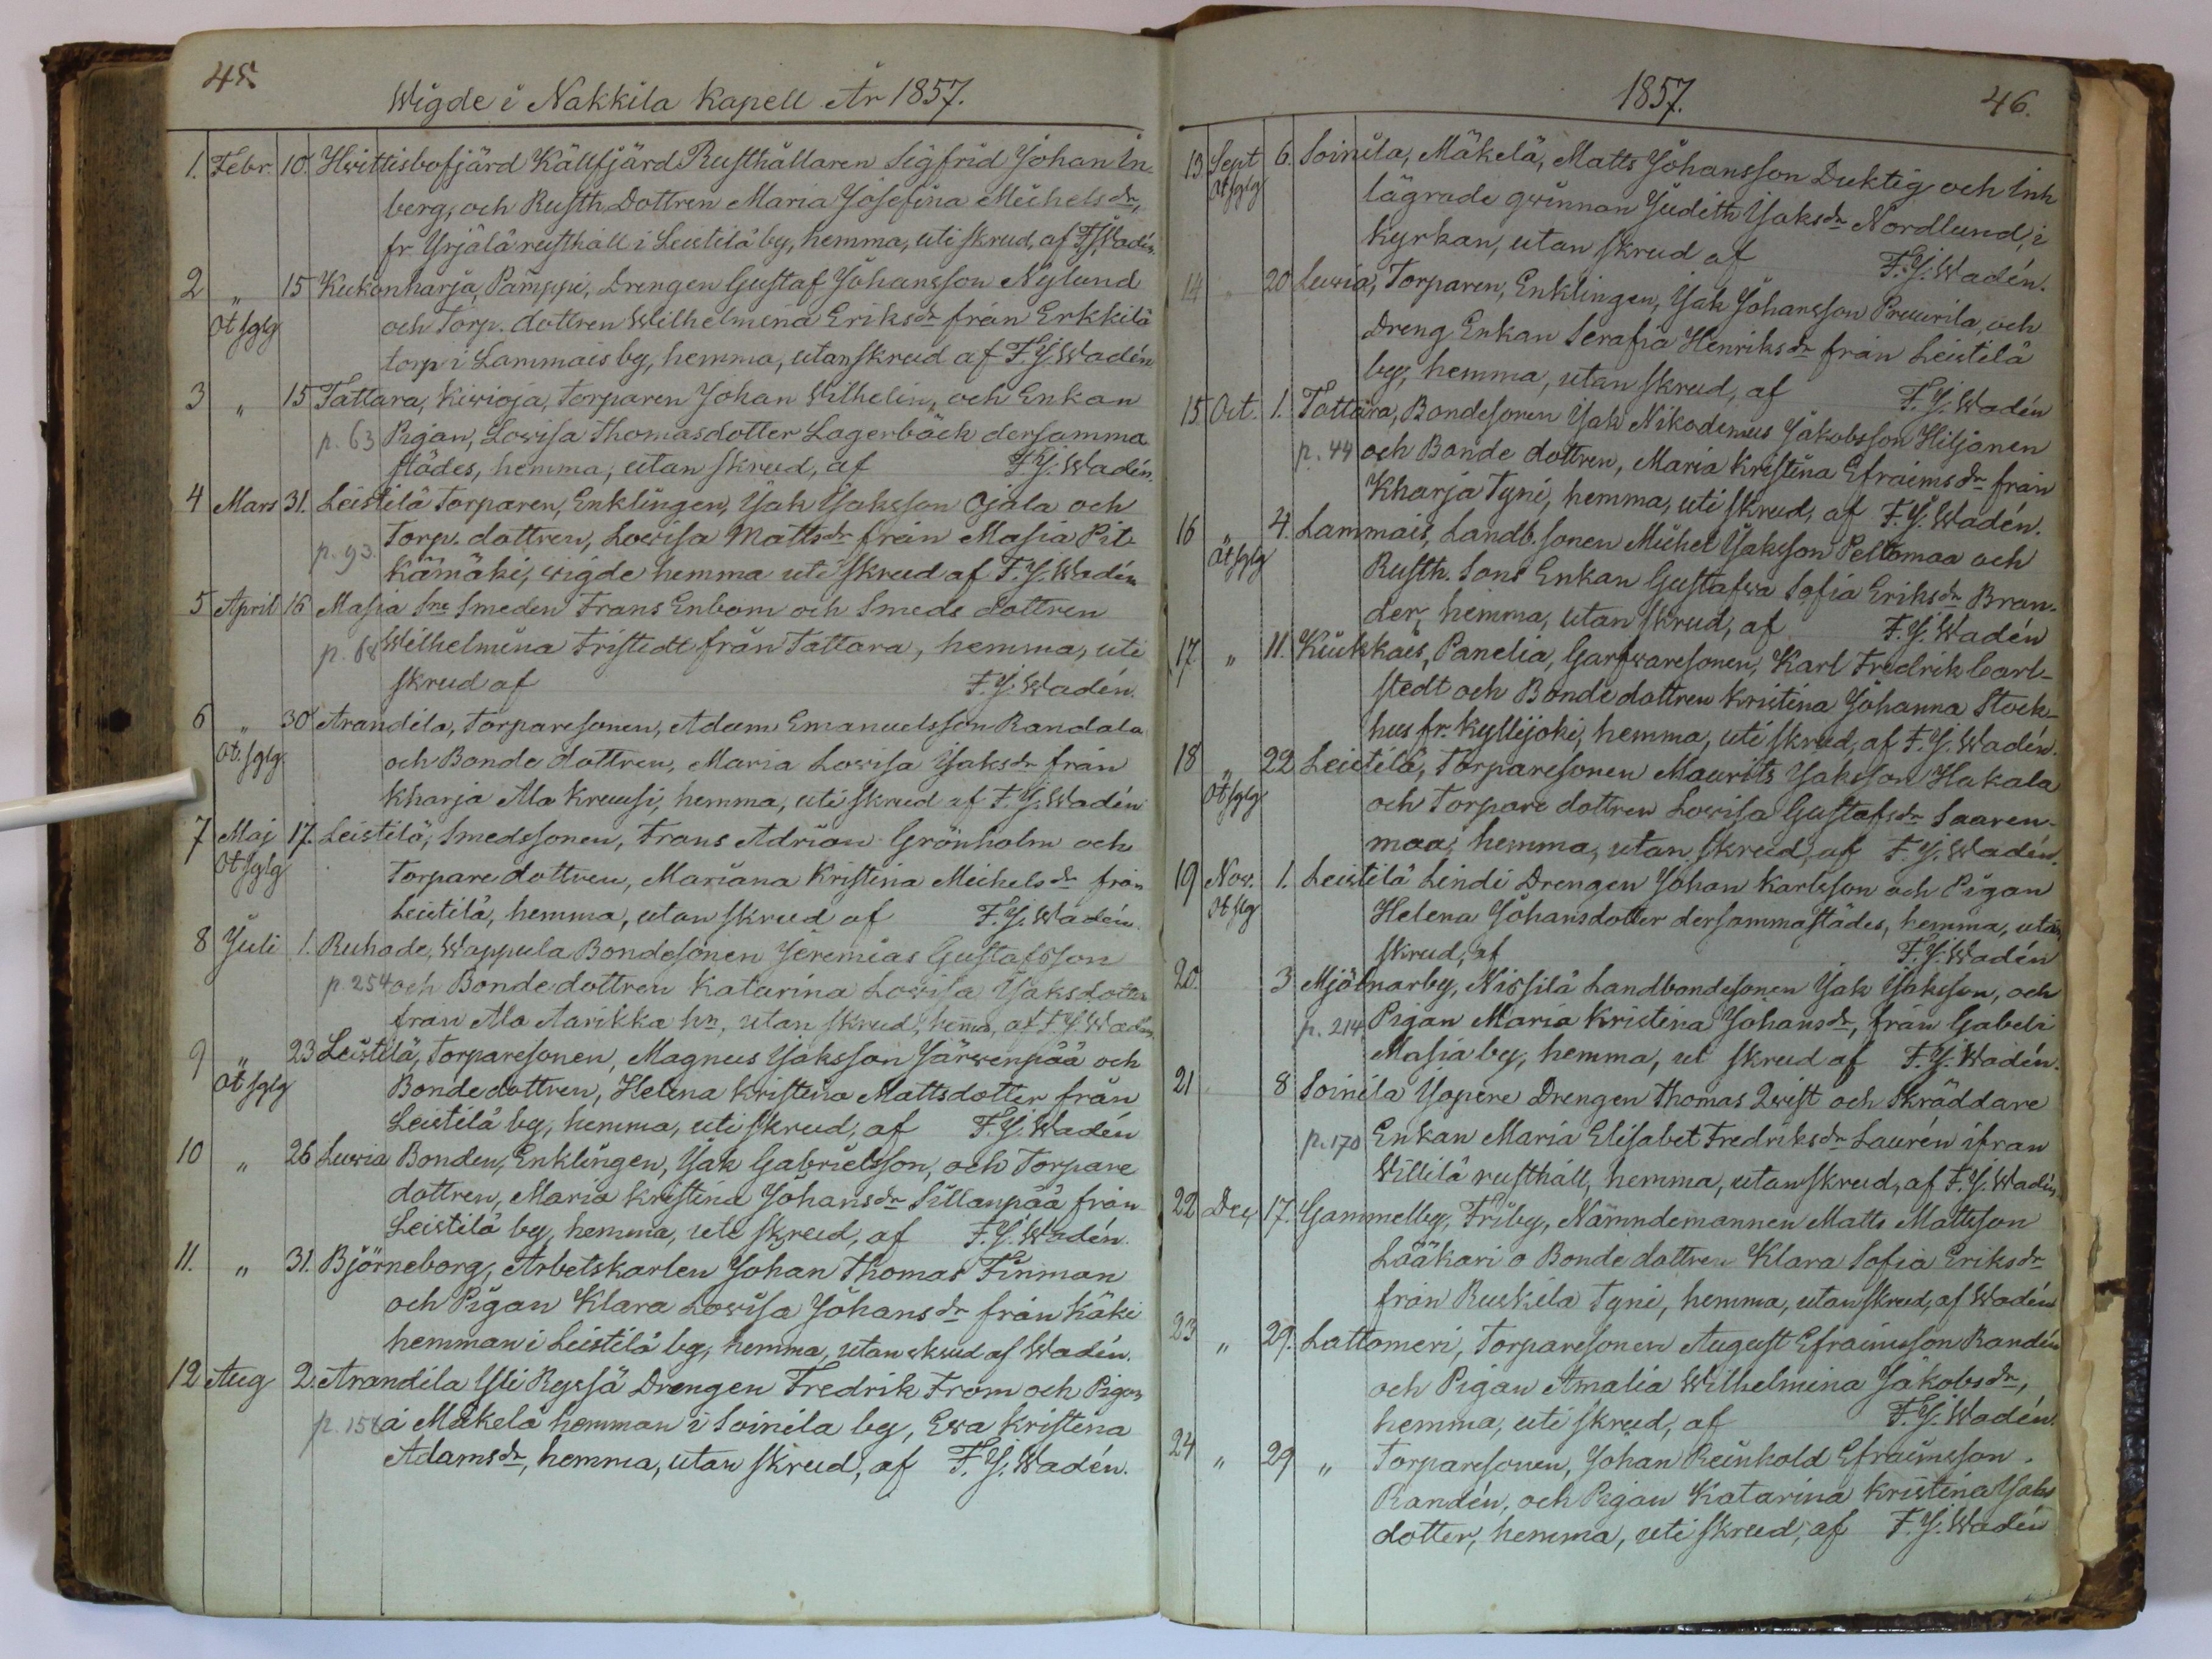 45.
Wigde i Nakkila Kapell År 1857.
1. Febr. 10. Hvittisbofjärd Källfjärd Rusthållaren Sigfrid Johan In-
berg, och Rusth. Dottren Maria Josefina Michelsdr,
fr Yrjälä rusthåll i Leistilä by, hemma, uti skrud, af F.J. Wadén
2 „ 15 Kukonharja, Pamppi, Drengen Gustaf Johansson Nylund
Ot sglg och Torp. dottren Wilhelmina Eriksdr från Erkkilä
torp i Lammais by, hemma, utan skrud af F.J. Wadén
3 „ 15 Tattara, Kivioja, Torparen Johan Wilhelin, och Enkan
p. 63 Pigan, Lovisa Thomasdotter Lagerbäck dersamma
städes, hemma, utan skrud, af F.J. Wadén.
4 Mars 31. Leistilä Torparen, Enklingen, Isak Isaksson Ojala och
p. 93. Torp. dottren, Lovisa Mattsdr från Masia Pit-
kämäki, wigde hemma uti skrud af F.J. Wadén
5 April 16 Masia Sne Smeden Frans Enbom och Smeds dottren
p. 68 Wilhelmina Fristedt från Tattara, hemma, uti
skrud af F.J. Wadén.
6 „ 30 Arandila, Torparesonen, Adam Emanuelsson Randala
Ot. sglg. och Bonde dottren, Maria Lovisa Isaksdr från
Kharja Ala Kruusi, hemma, uti skrud af F.J. Wadén
7 Maj 17. Leistilä, Smedssonen, Frans Adrian Grönholm och
Ot sglg Torpare dottren, Mariana Kristina Michelsdr från
Leistilä, hemma, utan skrud af F.J. Wadén.
8 Juli 1. Ruhade, Wappula Bondesonen Jeremias Gustafsson
p. 254 och Bonde dottren Katarina Lovisa Isaksdotter
från Ala Aarikka hn, utan skrud, hema, af F.J. Wadén
9 „ 23 Leistilä, Torparesonen, Magnus Isaksson Järvenpää och
Ot sglg Bondedottren, Helena Kristina Mattsdotter från
Leistilä by, hemma, uti skrud, af F.J. Wadén
10 „ 26 Luvia Bonden, Enklingen, Isak Gabrielsson, och Torpare
dottren, Maria Kristina Johansdr Sillanpää från
Leistilä by, hemma, uti skrud, af F.J. Wadén.
11. „ 31. Björneborg, Arbetskarlen Johan Thomas Finman
och Pigan Klara Lovisa Johansdr från Käki
hemman i Leistilä by, hemma, utan skrud af Wadén.
12 Aug 2. Arandila Yli Ryssä Drengen Fredrik From och Pigan
p. 158 å Mäkelä hemman i Soinila by, Ewa Kristina
Adamsdr, hemma, utan skrud, af F.J. Wadén.
1857. 46.
13. Sept 6. Soinila, Mäkelä, Matts Johansson Duktig och Inh
Ot sglg lägrade qwinnan Judith Isaksdr Nordlund, i
kyrkan, utan skrud af F.J. Wadén.
14 „ 20 Luvia, Torparen, Enklingen, Isak Johansson Pruurila, och
Dreng Enkan Serafia Henriksdr från Leistilä
by, hemma, utan skrud, af F.J. Wadén
15 Oct. 1. Tattara, Bondesonen Isak Nikodemus Jakobsson Hiljanen
p. 44 och Bonde dottren, Maria Kristina Efraimsdr från
Kharja Tyni, hemma, uti skrud, af F.J. Wadén.
16 „ 4. Lammais, Landb. sonen Michel Isaksson Peltomaa och
Ot sglg Rusth. Sons Enkan Gustafva Sofia Eriksdr Bran-
der, hemma, utan skrud, af F.J. Wadén
17. „ 11. Kiukkais, Panelia, Garfvaresonen, Karl Fredrik Carl-
stedt och Bonde dottren Kristina Johanna Stock-
hus fr. Kyllijoki, hemma, uti skrud, af F.J. Wadén.
18 „ 22 Leistilä, Torparesonen Maurits Isaksson Hakala
Ot sglg och Torpare dottren Lovisa Gustafsdr Saaren-
maa, hemma, utan skrud, af F.J. Wadén.
19 Nov. 1. Leistilä Lindi Drengen Johan Karlsson och Pigan
Ot slg Helena Johansdotter dersammastädes, hemma, utan
skrud, af F.J. Wadén
20. 3 Mjölnarby, Nissilä Landbondesonen Isak Isaksson, och
p. 214 Pigan Maria Kristina Johansdr, från Gabeli
Masia by, hemma, ut skrud af F.J. Wadén.
21 8 Soinila Yopere Drengen Thomas Qvist och Skräddare
p. 170 Enkan Maria Elisabet Fredriksdr Laurén ifran
Willilä rusthåll, hemma, utan skrud, af F.J. Wadén
22 Dec 17. Gammelby, Friby, Nämndemannen Matts Mattsson
Lääkäri o Bonde dottren Klara Sofia Eriksdr
från Ruskila Tyni, hemma, utan skrud, af Wadén
23 „ 29. Lattomeri, Torparesonen August Efraimsson Randén
och Pigan Amalia Wilhelmina Jakobsdr,
hemma, uti skrud, af F.J. Wadén.
24 „ 29 „ Torparesonen, Johan Reinhold Efraimsson
Randén, och Pigan Katarina Kristina Isaks
dotter, hemma, uti skrud, af F.J. Wadén